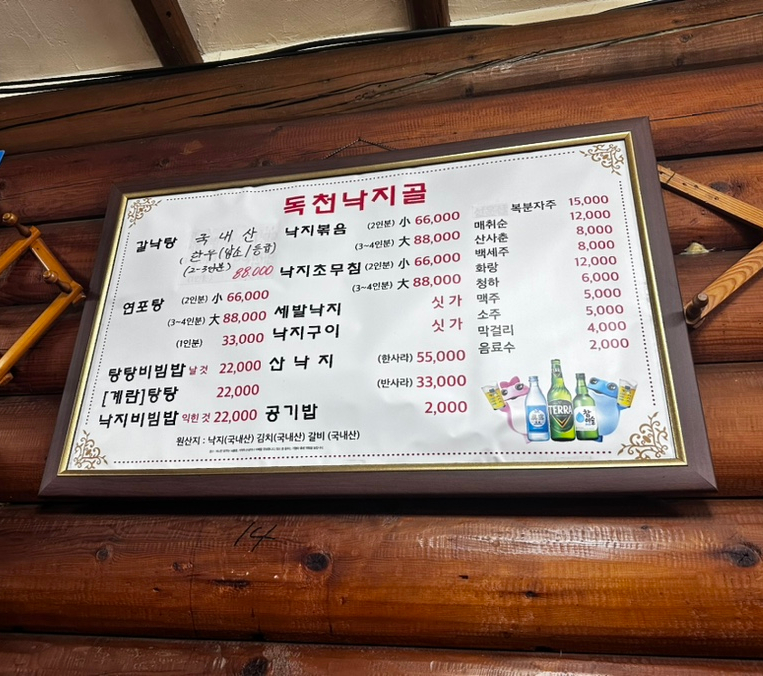 독천낙지골
갈낙탕 국내산
한우(암소1등급)
(2-3인분) 88,000
연포탕 (2인분) 小 66,000
(3~4인분) 大 88,000
(1인분) 33,000
탕탕비빔밥 날것 22,000
[계란]탕탕 22,000
낙지비빔밥 익힌것 22,000
낙지볶음 (2인분) 小 66,000
(3~4인분) 大 88,000
낙지초무침 (2인분) 小 66,000
(3~4인분) 大 88,000
세발낙지 싯가
낙지구이 싯가
산낙지 (한사라) 55,000
(반사라) 33,000
공기밥 2,000
복분자주 15,000
매취순 12,000
산사춘 8,000
백세주 8,000
화랑 12,000
청하 6,000
맥주 5,000
소주 5,000
막걸리 4,000
음료수 2,000
TERRA
원산지 : 낙지(국내산) 김치(국내산) 갈비 (국내산)
14